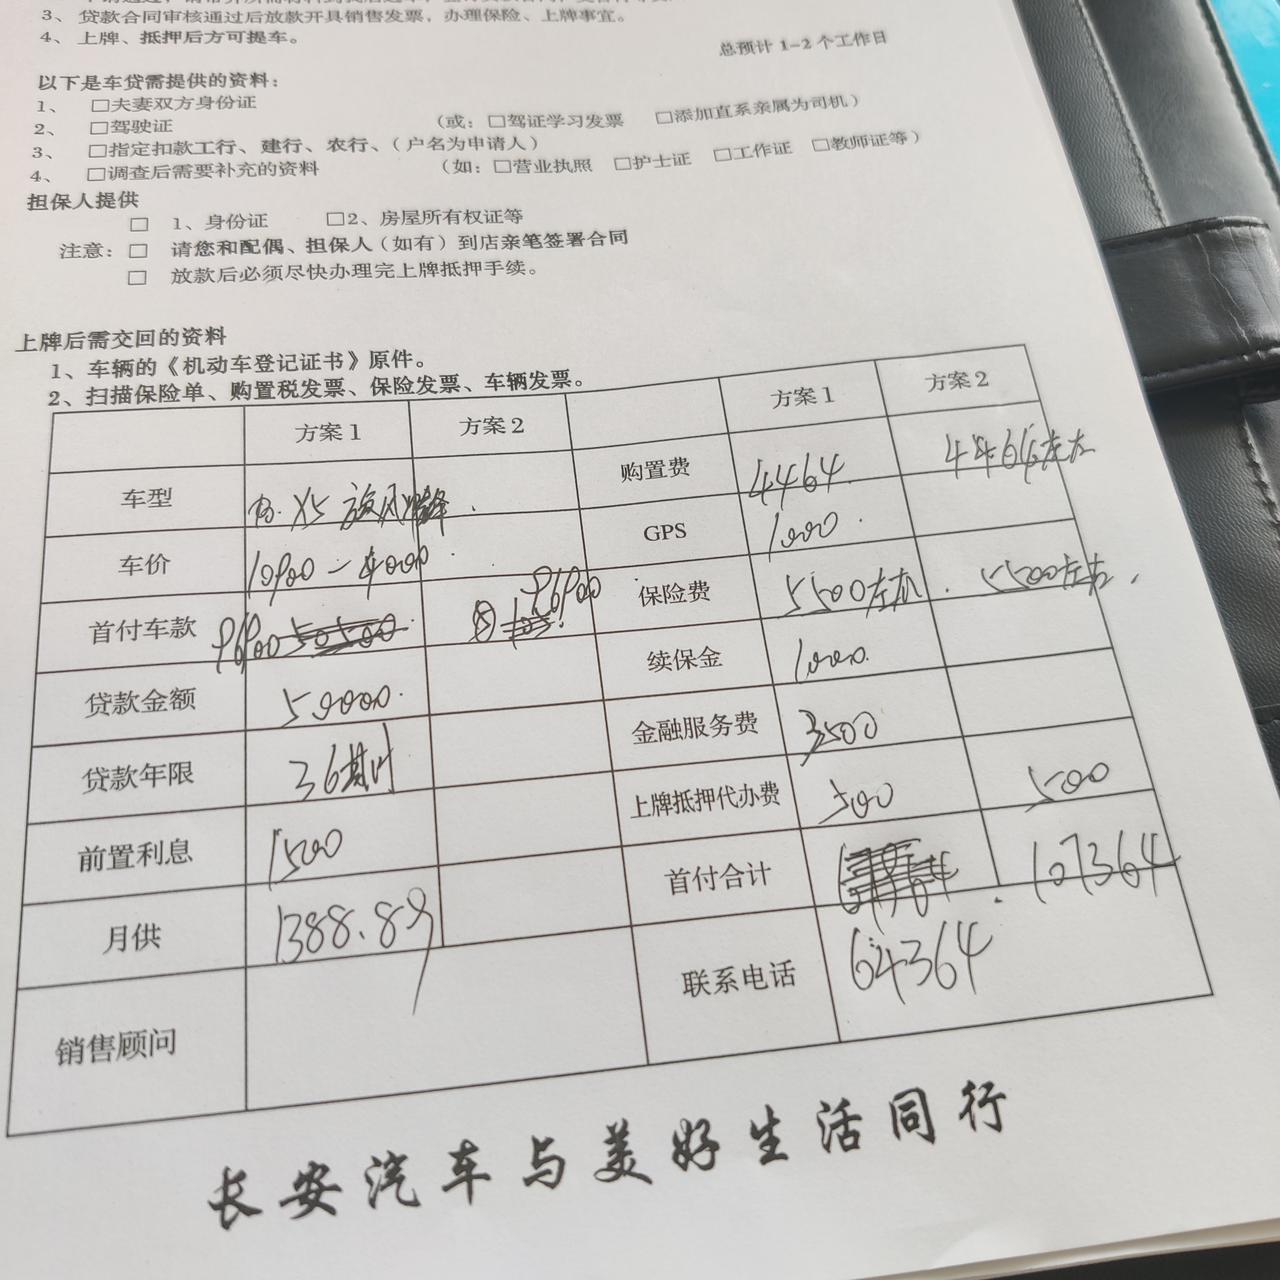 3、贷款合同审核通过后放款开具销售发票，办理保险、上牌事宜。
4、上牌、抵押后方可提车。
总预计 1-2 个工作日
以下是车贷需提供的资料：
1、 □夫妻双方身份证
2、 □驾驶证 （或：□驾证学习发票 □添加直系亲属为司机）
3、 □指定扣款工行、建行、农行、（户名为申请人）
4、 □调查后需要补充的资料 （如：□营业执照 □护士证 □工作证 □教师证等）
担保人提供
□ 1、身份证 □2、房屋所有权证等
注意：□ 请您和配偶、担保人（如有）到店亲笔签署合同
□ 放款后必须尽快办理完上牌抵押手续。
上牌后需交回的资料
1、车辆的《机动车登记证书》原件。
2、扫描保险单、购置税发票、保险发票、车辆发票。
方案1 方案2 方案1 方案2
车型 X5 购置费 4464. 4464左右
车价 10900-4000. GPS 1000.
首付车款 96900 96900 保险费 5500左右. 5500左右,
贷款金额 50000. 续保金 1000.
贷款年限 36期 金融服务费 3500
前置利息 1500 上牌抵押代办费 500 500
月供 1388.89 首付合计 107364
销售顾问 联系电话 64364
长安汽车与美好生活同行